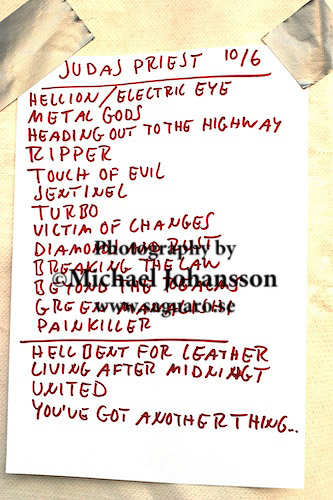 JUDAS PRIEST 10/6
HELLION/ELECTRIC EYE
METAL GODS
HEADING OUT TO THE HIGHWAY
RIPPER
TOUCH OF EVIL
SENTINEL
TURBO
VICTIM OF CHANGES
DIAMOND AND RUST
Photography by
BREAKING THE LAW
©Michael Johansson
BEYOND THE REALMS
www.sugaro.se
GREEN MANALISHI
PAINKILLER
HELL BENT FOR LEATHER
LIVING AFTER MIDNIGT
UNITED
YOU'VE GOT ANOTHER THING...